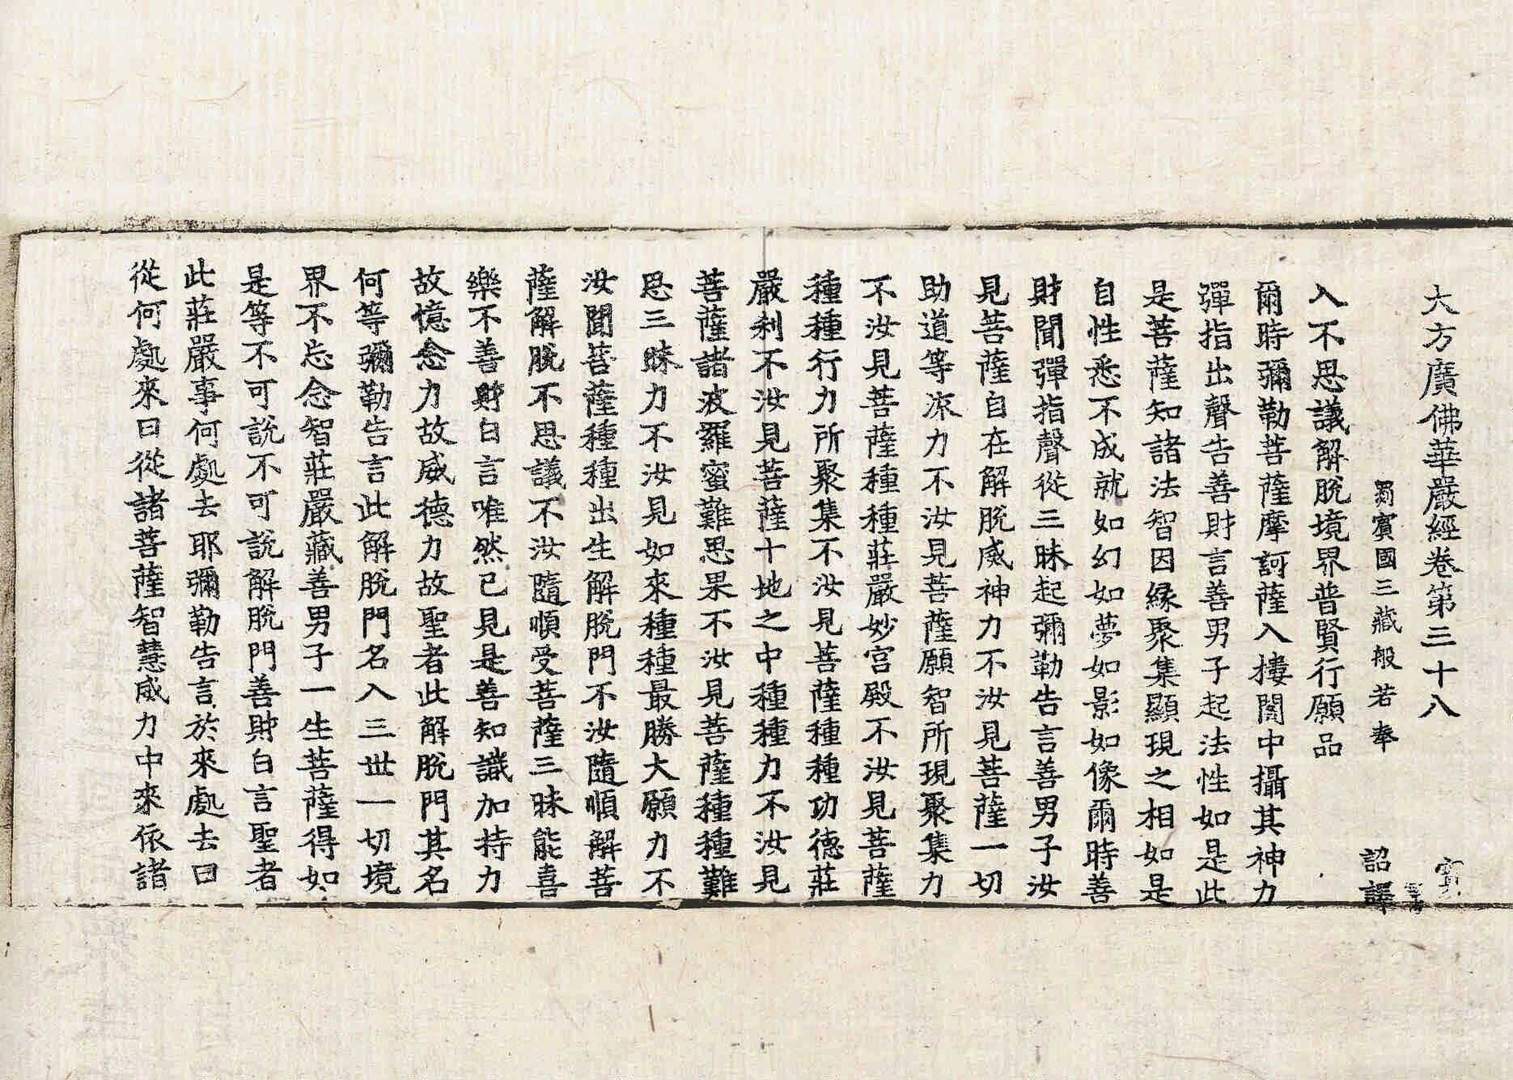 大方廣佛華嚴經卷第三十八
罽賓國三藏般若奉 詔譯
入不思議解脫境界普賢行願品
爾時彌勒菩薩摩訶薩入樓閣中攝其神力
彈指出聲告善財言善男子起法性如是此
是菩薩知諸法智因緣聚集顯現之相如是
自性悉不成就如幻如夢如影如像爾時善
財聞彈指聲從三昧起彌勒告言善男子汝
見菩薩自在解脫威神力不汝見菩薩一切
助道等流力不汝見菩薩願智所現聚集力
不汝見菩薩種種莊嚴妙宮殿不汝見菩薩
種種行力所聚集不汝見菩薩種種功德莊
嚴剎不汝見菩薩十地之中種種力不汝見
菩薩諸波羅蜜難思果不汝見菩薩種種難
思三昧力不汝見如來種種最勝大願力不
汝聞菩薩種種出生解脫門不汝隨順解菩
薩解脫不思議不汝隨順受菩薩三昧能喜
樂不善財白言唯然已見是善知識加持力
故憶念力故威德力故聖者此解脫門其名
何等彌勒告言此解脫門名入三世一切境
界不忘念智莊嚴藏善男子一生菩薩得如
是等不可說不可說解脫門善財白言聖者
此莊嚴事何處去耶彌勒告言於來處去曰
從何處來曰從諸菩薩智慧威力中來依諸